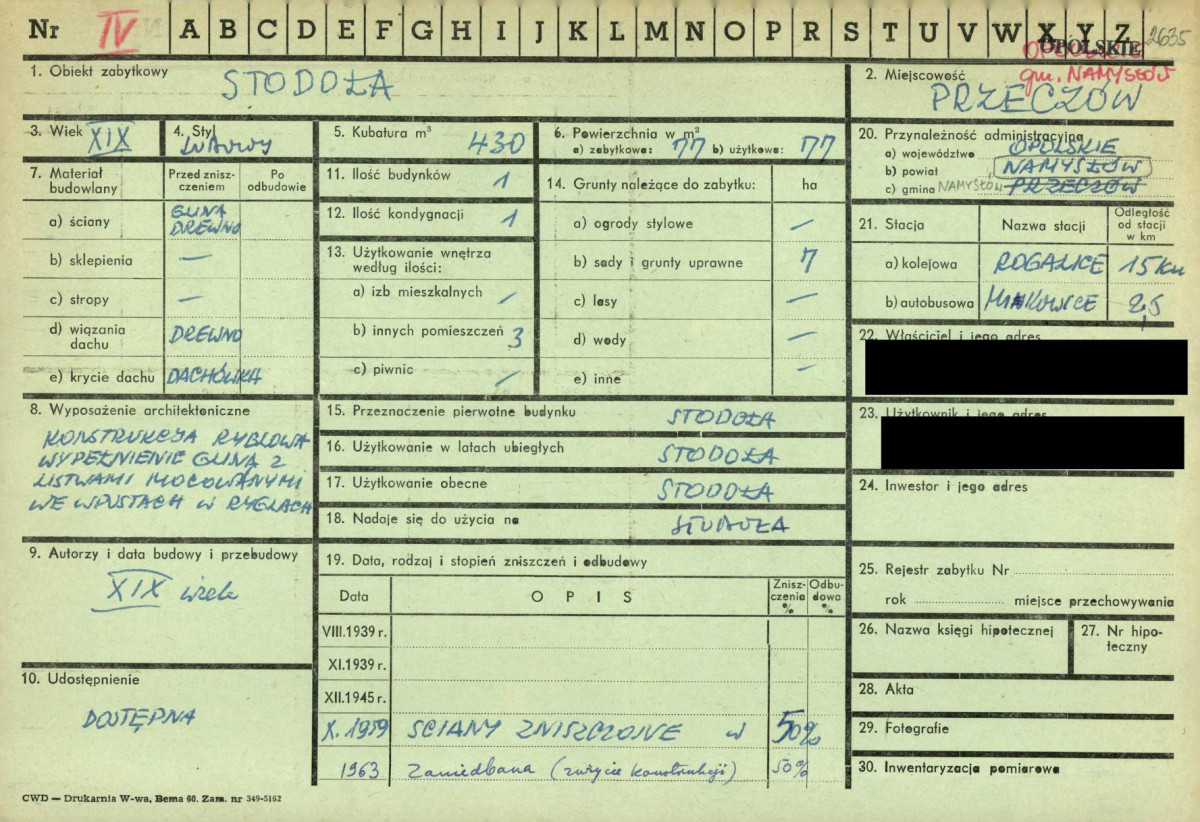 Nr IV A B C D E F G H I J K L M N O P R S T U V W X Y Z 2635
OPOLSKIE
gm. NAMYSŁÓW
1. Obiekt zabytkowy
STODOŁA
2. Miejscowość
PRZECZÓW
3. Wiek XIX
4. Styl
LUDOWY
5. Kubatura m³ 430
6. Powierzchnia w m²
a) zabytkowa: 77 b) użytkowa: 77
7. Materiał budowlany
Przed zniszczeniem
Po odbudowie
a) ściany GLINA DREWNO
b) sklepienia —
c) stropy —
d) wiązania dachu DREWNO
e) krycie dachu DACHÓWKA
8. Wyposażenie architektoniczne
KONSTRUKCJA RYGLOWA
WYPEŁNIENIE GLINĄ Z
LISTWAMI MOCOWANYMI
WE WPUSTACH W RYGLACH
9. Autorzy i data budowy i przebudowy
XIX wiek
10. Udostępnienie
DOSTĘPNA
11. Ilość budynków 1
12. Ilość kondygnacji 1
13. Użytkowanie wnętrza według ilości:
a) izb mieszkalnych —
b) innych pomieszczeń 3
c) piwnic —
14. Grunty należące do zabytku: ha
a) ogrody stylowe —
b) sady i grunty uprawne 7
c) lasy —
d) wody —
e) inne —
15. Przeznaczenie pierwotne budynku STODOŁA
16. Użytkowanie w latach ubiegłych STODOŁA
17. Użytkowanie obecne STODOŁA
18. Nadaje się do użycia na STODOŁA
19. Data, rodzaj i stopień zniszczeń i odbudowy
Data OPIS Zniszczenia % Odbudowa %
VIII.1939 r.
XI.1939 r.
XII.1945 r.
X.1959 ŚCIANY ZNISZCZONE w 50%
1963 Zaniedbana (zużycie konstrukcji) 50%
20. Przynależność administracyjna
a) województwo OPOLSKIE
b) powiat NAMYSŁÓW
c) gmina NAMYSŁÓW PRZECZÓW
21. Stacja Nazwa stacji Odległość od stacji w km
a) kolejowa ROGALICE 15 km
b) autobusowa 2,5
22. Właściciel i jego adres
23. Użytkownik i jego adres
24. Inwestor i jego adres
25. Rejestr zabytku Nr
rok miejsce przechowywania
26. Nazwa księgi hipotecznej
27. Nr hipoteczny
28. Akta
29. Fotografie
30. Inwentaryzacja pomiarowa
CWD — Drukarnia W-wa, Bema 60. Zam. nr 349-5162